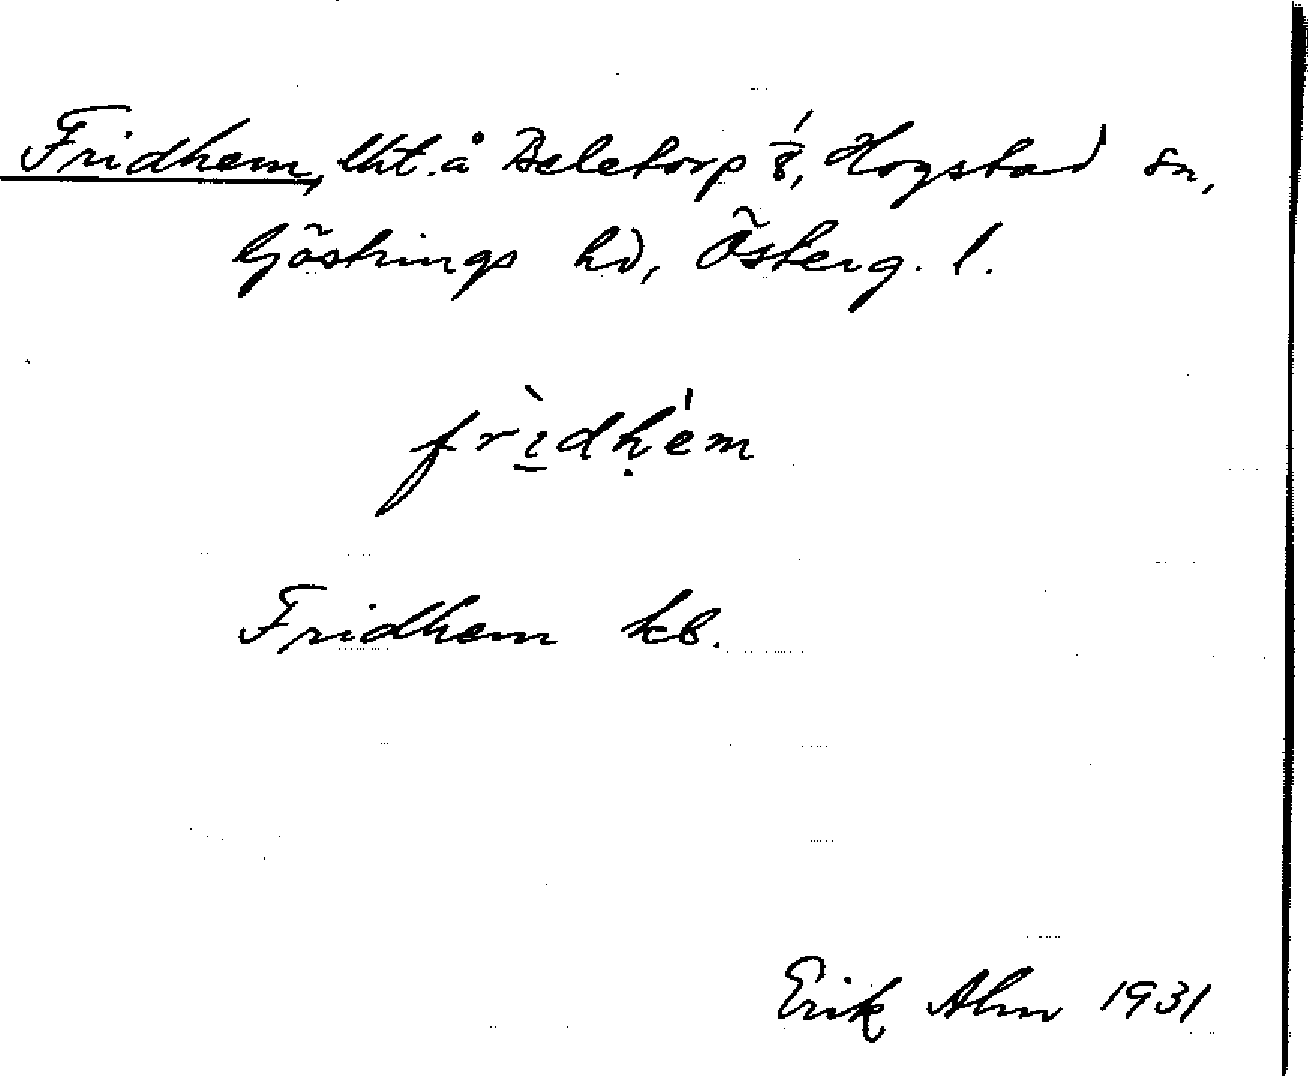 Fridhem, lht. å Beletorp 1/8, Hogstad sn,
Göstrings hd, Österg. l.
frìdhém
Fridhem kb.
Erik Ahn 1931